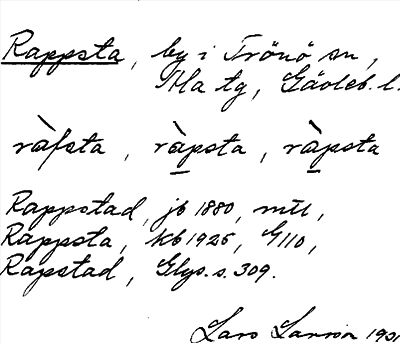 Rappsta, by i Trönö sn,
Ala tg, Gävleb. l.
ràfsta, ràpsta, ràpsta
Rappstad, jb 1880, mtl,
Rappsta, kb 1925, G110,
Rapstad, Glys. s. 309.
Lars Larsson 1931